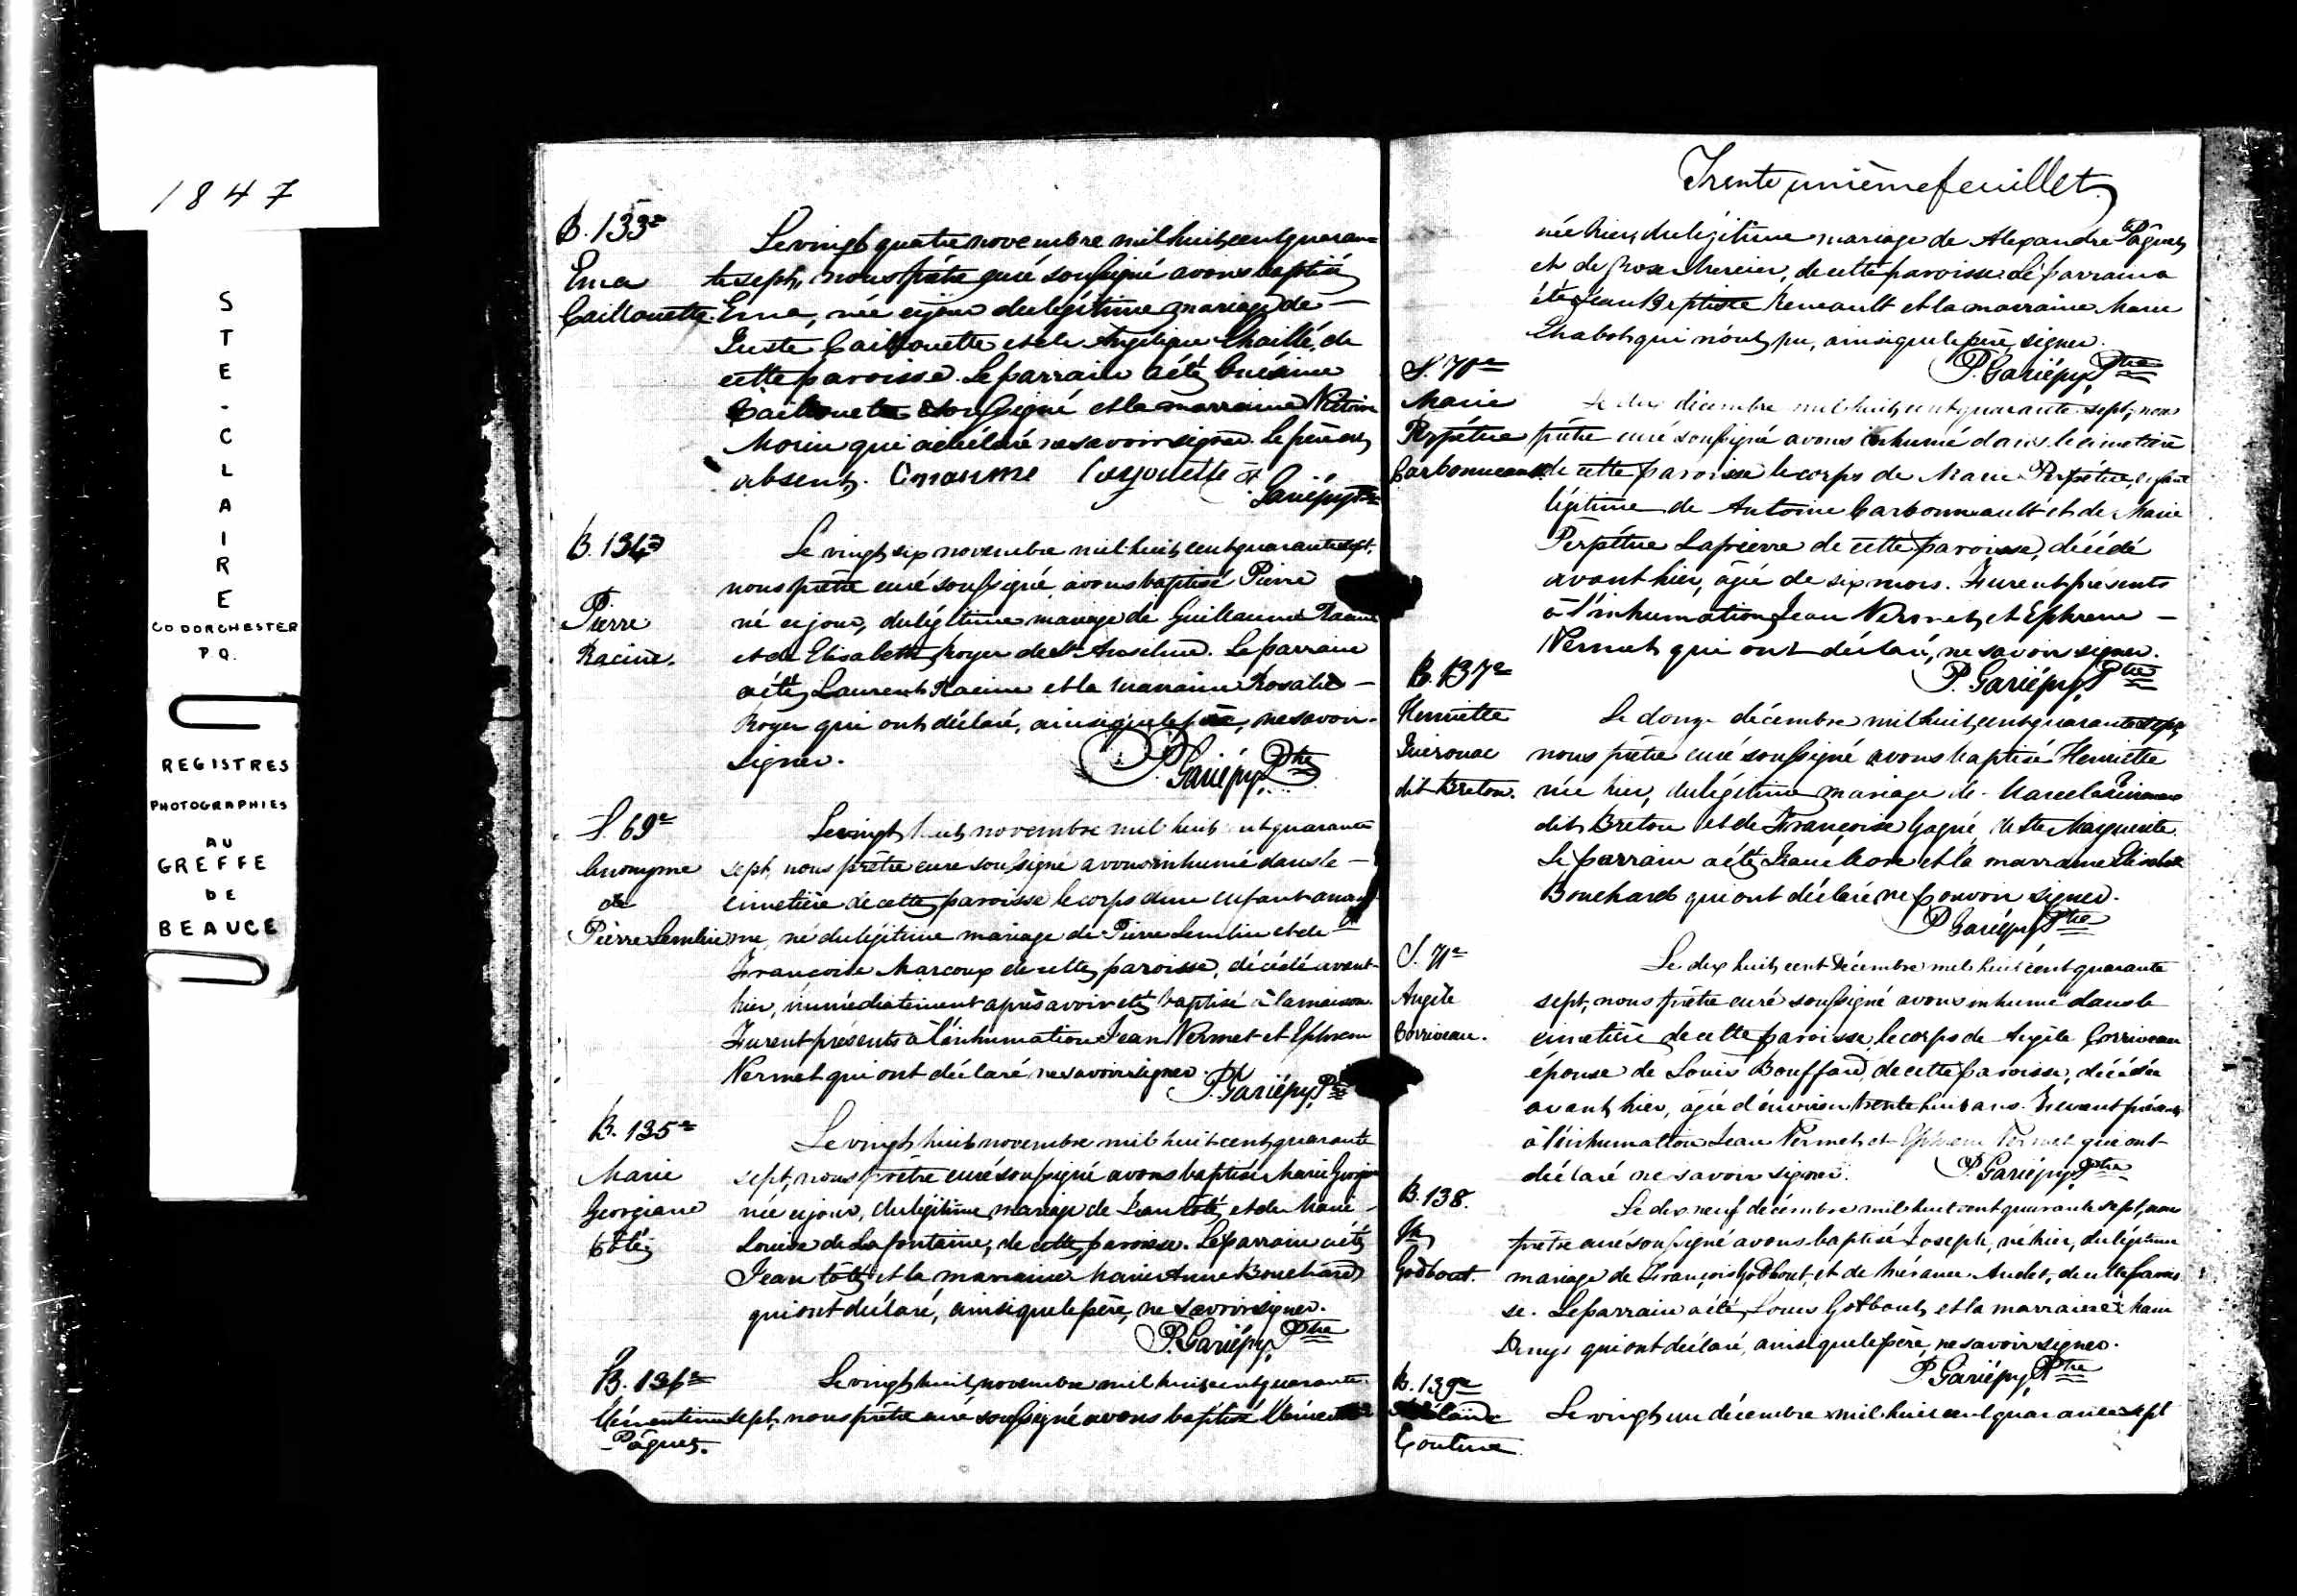 1847
STE-CLAIRE
CO DORCHESTER
P.Q.
REGISTRES
PHOTOGRAPHIES
AU
GREFFE
DE
BEAUCE
B. 133e
Ema
Caillouette
Le vingt quatre novembre mil huit cent quaran=
te sept, nous prêtre curé soussigné avons baptisé
Ema, née ce jour du légitime mariage de
Juste Caillouette et de Angélique Chaillé, de
cette paroisse. Le parrain a été
Caillouette soussigné et la marraine
Morin qui a déclaré ne savoir signer. Le père est
absent.
Gariépy Ptre
B. 134e
Pierre
Racine.
Le vingt six novembre mil huit cent quarante sept,
nous prêtre curé soussigné avons baptisé Pierre
né ce jour, du légitime mariage de Guillaume Racine
et de Elisabeth Royer de St Anselme. Le parrain
a été Laurent Racine et la marraine Rosalie
Royer qui ont déclaré, ainsi que le père, ne savoir
signer.
P. Gariépy Ptre
S. 69e
Anonyme
de
Pierre Lemlin
Le vingt huit novembre mil huit cent quarante
sept, nous prêtre curé soussigné avons inhumé dans le
cimetière de cette paroisse le corps d'un enfant anony
me, né du légitime mariage de Pierre Lemlin et de
Françoise Marcoux de cette paroisse, décédé avant-
hier, immédiatement après avoir été baptisé à la maison.
Furent présents à l'inhumation Jean Vermet et Ephrem
Vermet qui ont déclaré ne savoir signer.
P. Gariépy Ptre
B. 135e
Marie
Georgiane
Côté
Le vingt huit novembre mil huit cent quarante
sept, nous prêtre curé soussigné avons baptisé Marie
née ce jour, du légitime mariage de Jean Côté et de Marie
Louise de Lafontaine, de cette paroisse. Le parrain a été
Jean Côté et la marraine Marie Anne Bouchard
qui ont déclaré, ainsi que le père, ne savoir signer.
P. Gariépy Ptre
B. 136e
Clémentine
Pâquet.
Le vingt huit novembre mil huit cent quarante
sept, nous prêtre curé soussigné avons baptisé Clémentine
Trente unième feuillet
née hier, du légitime mariage de Alexandre Pâquet
et de Rose Mercier, de cette paroisse. Le parrain a
été Jean Baptiste Renault et la marraine Marie
Chabot qui n'ont pu, ainsi que le père, signer.
P. Gariépy Ptre
S. 70e
Marie
Perpétue
Carbonneault
Le décembre mil huit cent quarante sept, nous
prêtre curé soussigné avons inhumé dans le cimetière
de cette paroisse le corps de Marie Perpétue, enfant
légitime de Antoine Carbonneault et de Marie
Perpétue Lapierre de cette paroisse, décédé
avant hier, âgée de six mois. Furent présents
à l'inhumation Jean Vermet et Ephrem
Vermet qui ont déclaré, ne savoir signer.
P. Gariépy Ptre
B. 137e
Henriette
dit Breton.
Le douze décembre mil huit cent quarante sept
nous prêtre curé soussigné avons baptisé Henriette
née hier, du légitime mariage de Marcel
dit Breton et de Françoise Gagné, de Ste Marguerite.
Le parrain a été et la marraine
Bouchard qui ont déclaré ne pouvoir signer.
P. Gariépy Ptre
S. 71e
Angèle
Corriveau.
Le dix huit cent décembre mil huit cent quarante
sept, nous prêtre curé soussigné avons inhumé dans le
cimetière de cette paroisse, le corps de Angèle Corriveau
épouse de Louis Bouffard, de cette paroisse, décédée
avant hier, âgée d'environ trente huit ans. Furent présents
à l'inhumation Jean Vermet et Ephrem Vermet qui ont
déclaré ne savoir signer.
P. Gariépy Ptre
B. 138.
Godbout.
Le dix neuf décembre mil huit cent quarante sept, nous
prêtre curé soussigné avons baptisé Joseph, né hier, du légitime
mariage de François Godbout et de Audet, de cette parois
se. Le parrain a été Louis Gotbout, et la marraine Marie
qui ont déclaré, ainsi que le père, ne savoir signer.
P. Gariépy Ptre
B. 139e
Couture
Le vingt un décembre mil huit cent quarante sept